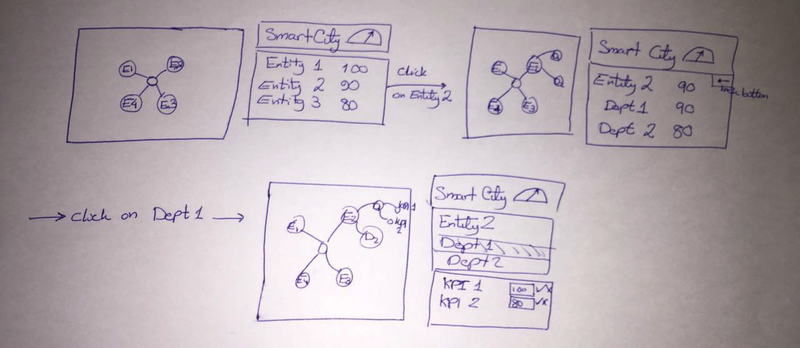 E1
E2
E4
E3
Smart City
Entity 1 100
Entity 2 90
Entity 3 80
click
on Entity 2
E1
E2
D
D
E4
E3
Smart City
Entity 2 90
Dept 1 90
Dept 2 80
back button
click on Dept 1
E1
E2
KPI 1
KPI 2
D2
E4
E3
Smart City
Entity 2
Dept 1
Dept 2
KPI 1 100 ✓x
KPI 2 80 ✓x